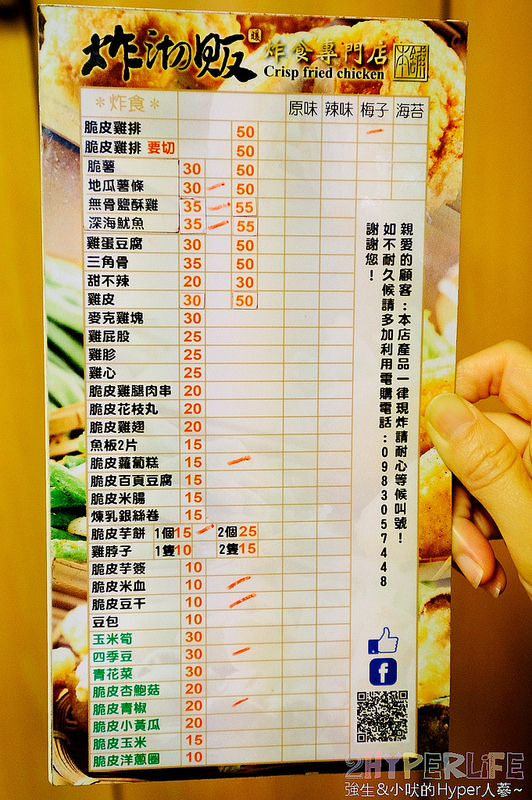 炸沏販
炸食專門店 本鋪
Crisp fried chicken
*炸食* 原味 辣味 梅子 海苔
脆皮雞排 50
脆皮雞排 要切 50
脆薯 30 50
地瓜薯條 30 50
無骨鹽酥雞 35 55
深海魷魚 35 55
雞蛋豆腐 30 50
三角骨 35 50
甜不辣 20 30
雞皮 30 50
麥克雞塊 30
雞屁股 25
雞胗 25
雞心 25
脆皮雞腿肉串 20
脆皮花枝丸 20
脆皮雞翅 20
魚板2片 15
脆皮蘿蔔糕 15
脆皮百頁豆腐 15
脆皮米腸 15
煉乳銀絲卷 15
脆皮芋餅 1個15 2個25
雞脖子 1隻10 2隻15
脆皮芋簽 10
脆皮米血 10
脆皮豆干 10
豆包 10
玉米筍 30
四季豆 30
青花菜 30
脆皮杏鮑菇 20
脆皮青椒 20
脆皮小黃瓜 20
脆皮玉米 15
脆皮洋蔥圈 10
親愛的顧客:本店產品一律現炸請耐心等候叫號!
如不耐久候請多加利用電購電話:0983057448
謝謝您!
f
2HYPERLiFE
強生&小吠的Hyper人蔘~